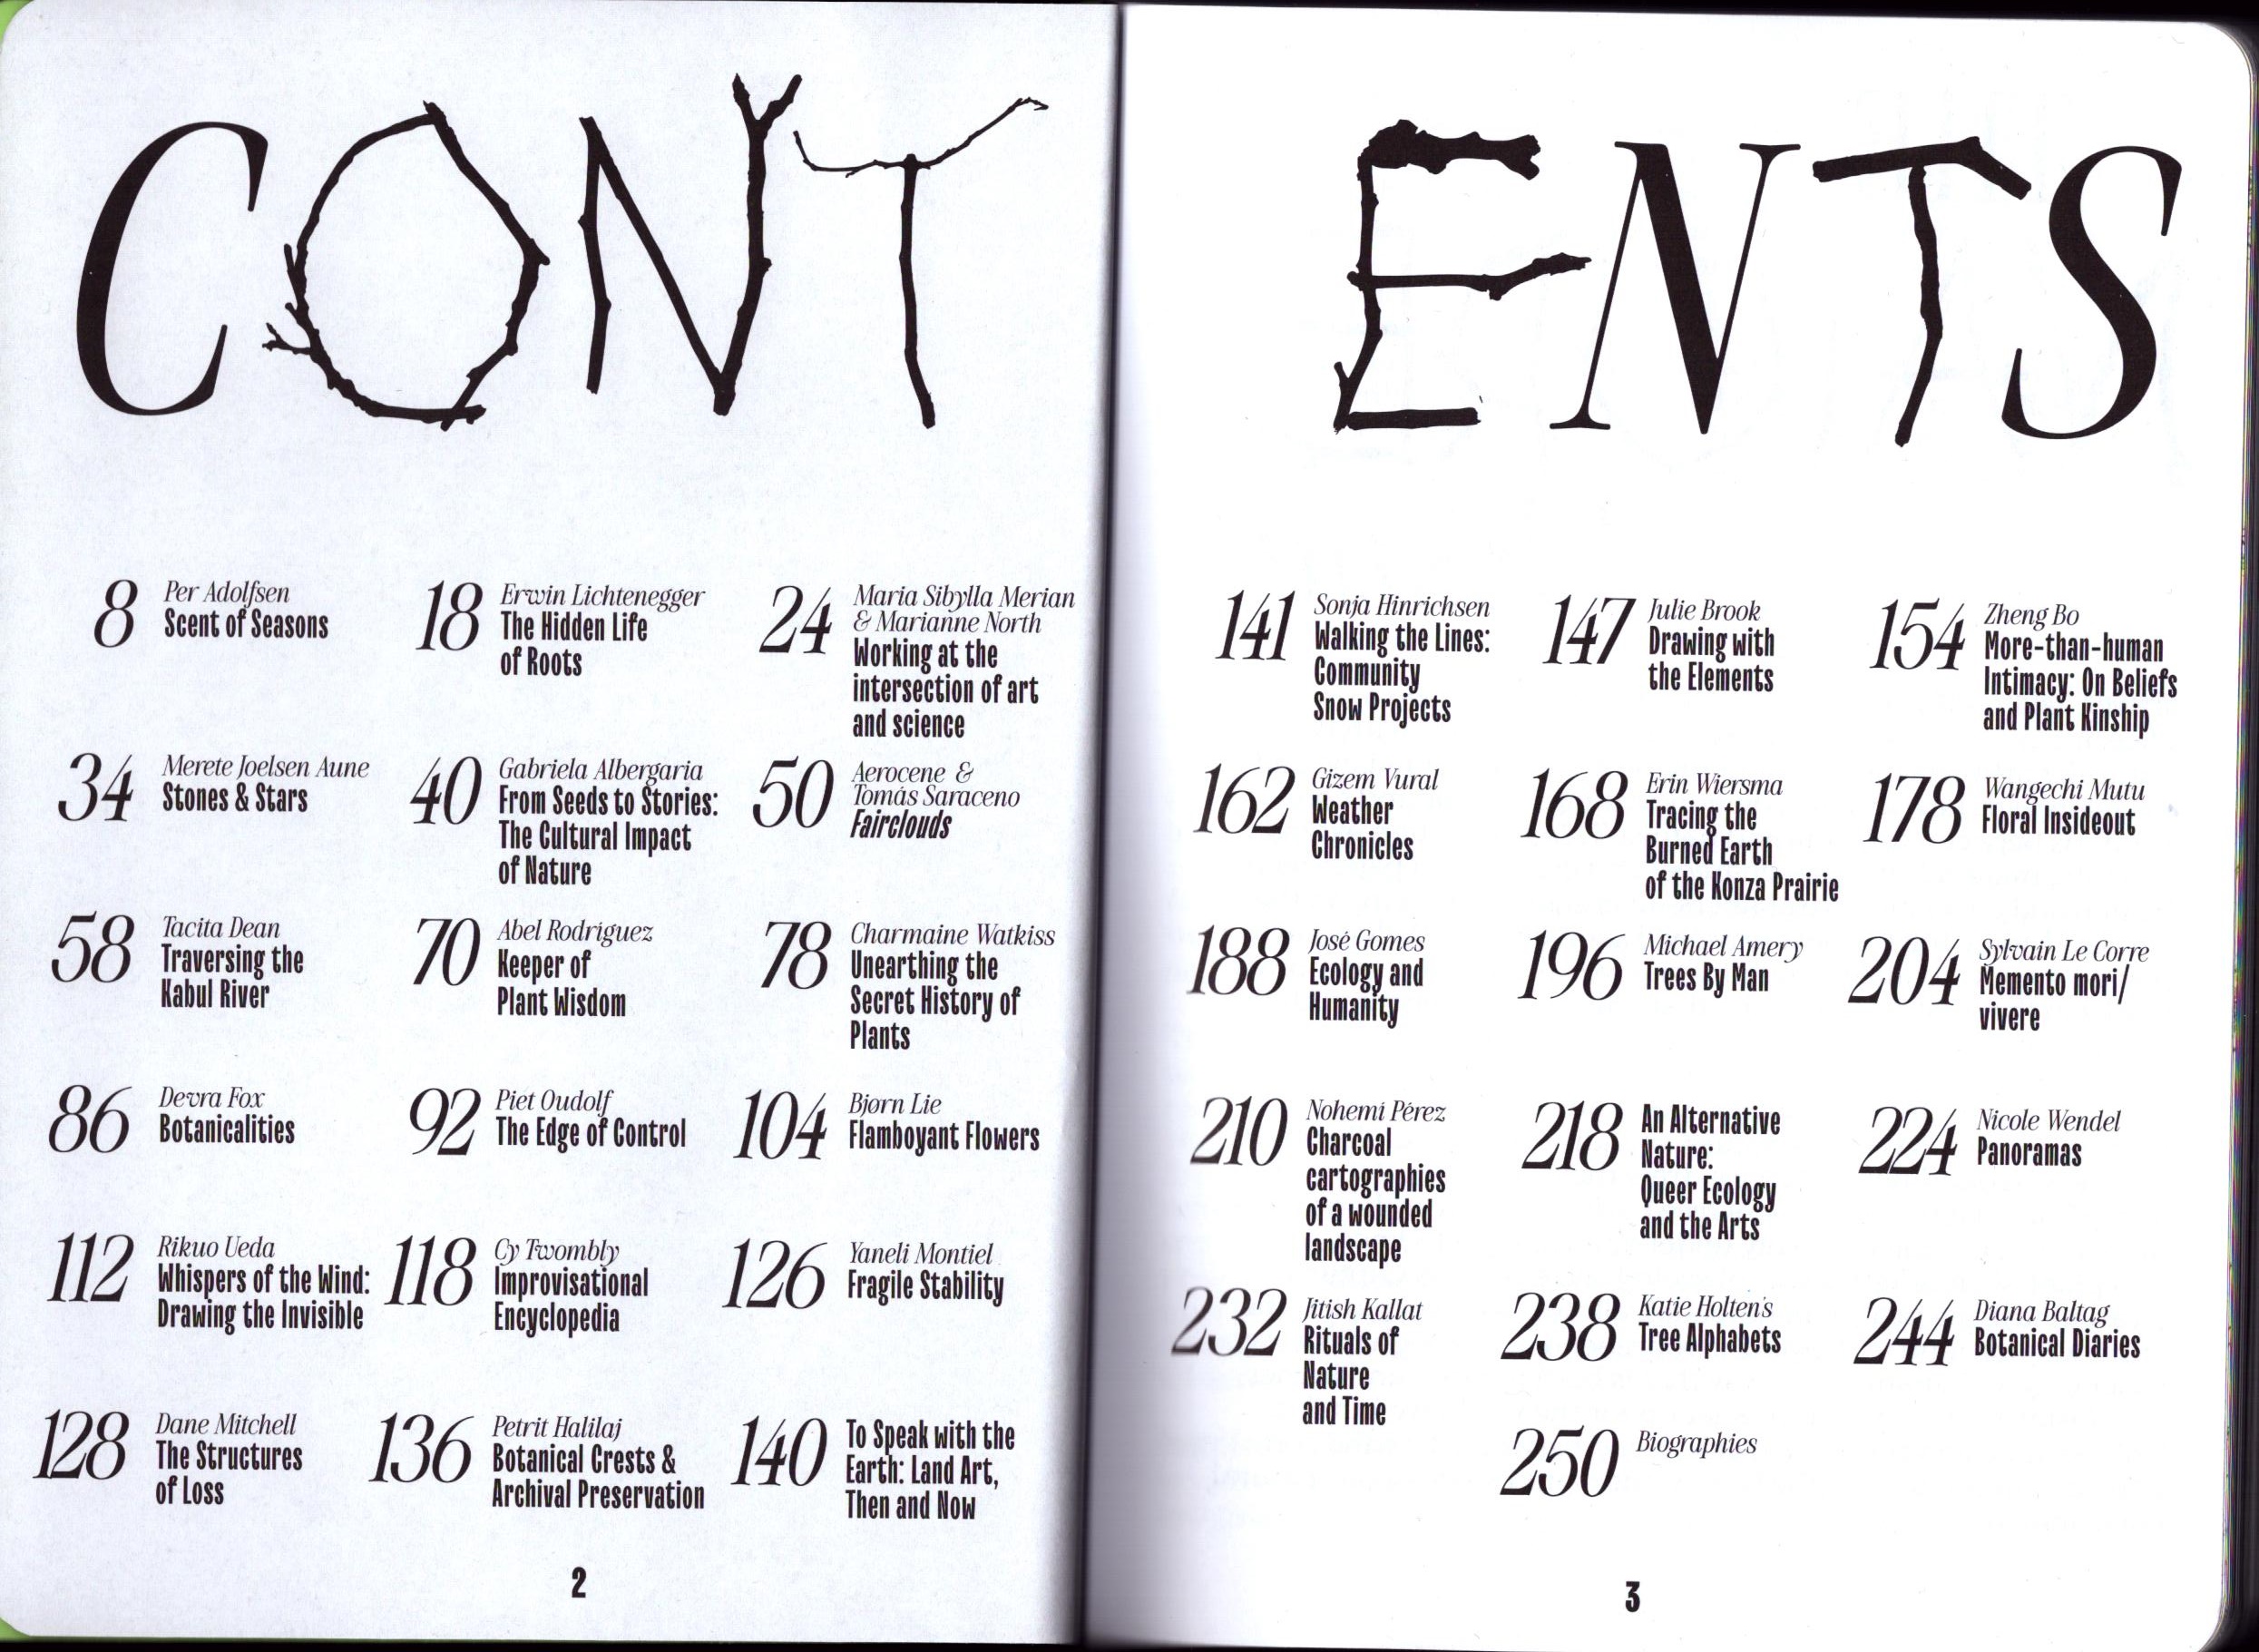 CONTENTS
8
Per Adolfsen
Scent of Seasons
18
Erwin Lichtenegger
The Hidden Life
of Roots
24
Maria Sibylla Merian
& Marianne North
Working at the
intersection of art
and science
34
Merete Joelsen Aune
Stones & Stars
40
Gabriela Albergaria
From Seeds to Stories:
The Cultural Impact
of Nature
50
Aerocene &
Tomás Saraceno
Fairclouds
58
Tacita Dean
Traversing the
Kabul River
70
Abel Rodríguez
Keeper of
Plant Wisdom
78
Charmaine Watkiss
Unearthing the
Secret History of
Plants
86
Devra Fox
Botanicalities
92
Piet Oudolf
The Edge of Control
104
Bjørn Lie
Flamboyant Flowers
112
Rikuo Ueda
Whispers of the Wind:
Drawing the Invisible
118
Cy Twombly
Improvisational
Encyclopedia
126
Yaneli Montiel
Fragile Stability
128
Dane Mitchell
The Structures
of Loss
136
Petrit Halilaj
Botanical Crests &
Archival Preservation
140
To Speak with the
Earth: Land Art,
Then and Now
2
141
Sonja Hinrichsen
Walking the Lines:
Community
Snow Projects
147
Julie Brook
Drawing with
the Elements
154
Zheng Bo
More-than-human
Intimacy: On Beliefs
and Plant Kinship
162
Gizem Vural
Weather
Chronicles
168
Erin Wiersma
Tracing the
Burned Earth
of the Konza Prairie
178
Wangechi Mutu
Floral Insideout
188
José Gomes
Ecology and
Humanity
196
Michael Amery
Trees By Man
204
Sylvain Le Corre
Memento mori/
vivere
210
Nohemí Pérez
Charcoal
cartographies
of a wounded
landscape
218
An Alternative
Nature:
Queer Ecology
and the Arts
224
Nicole Wendel
Panoramas
232
Jitish Kallat
Rituals of
Nature
and Time
238
Katie Holten's
Tree Alphabets
244
Diana Baltag
Botanical Diaries
250
Biographies
3